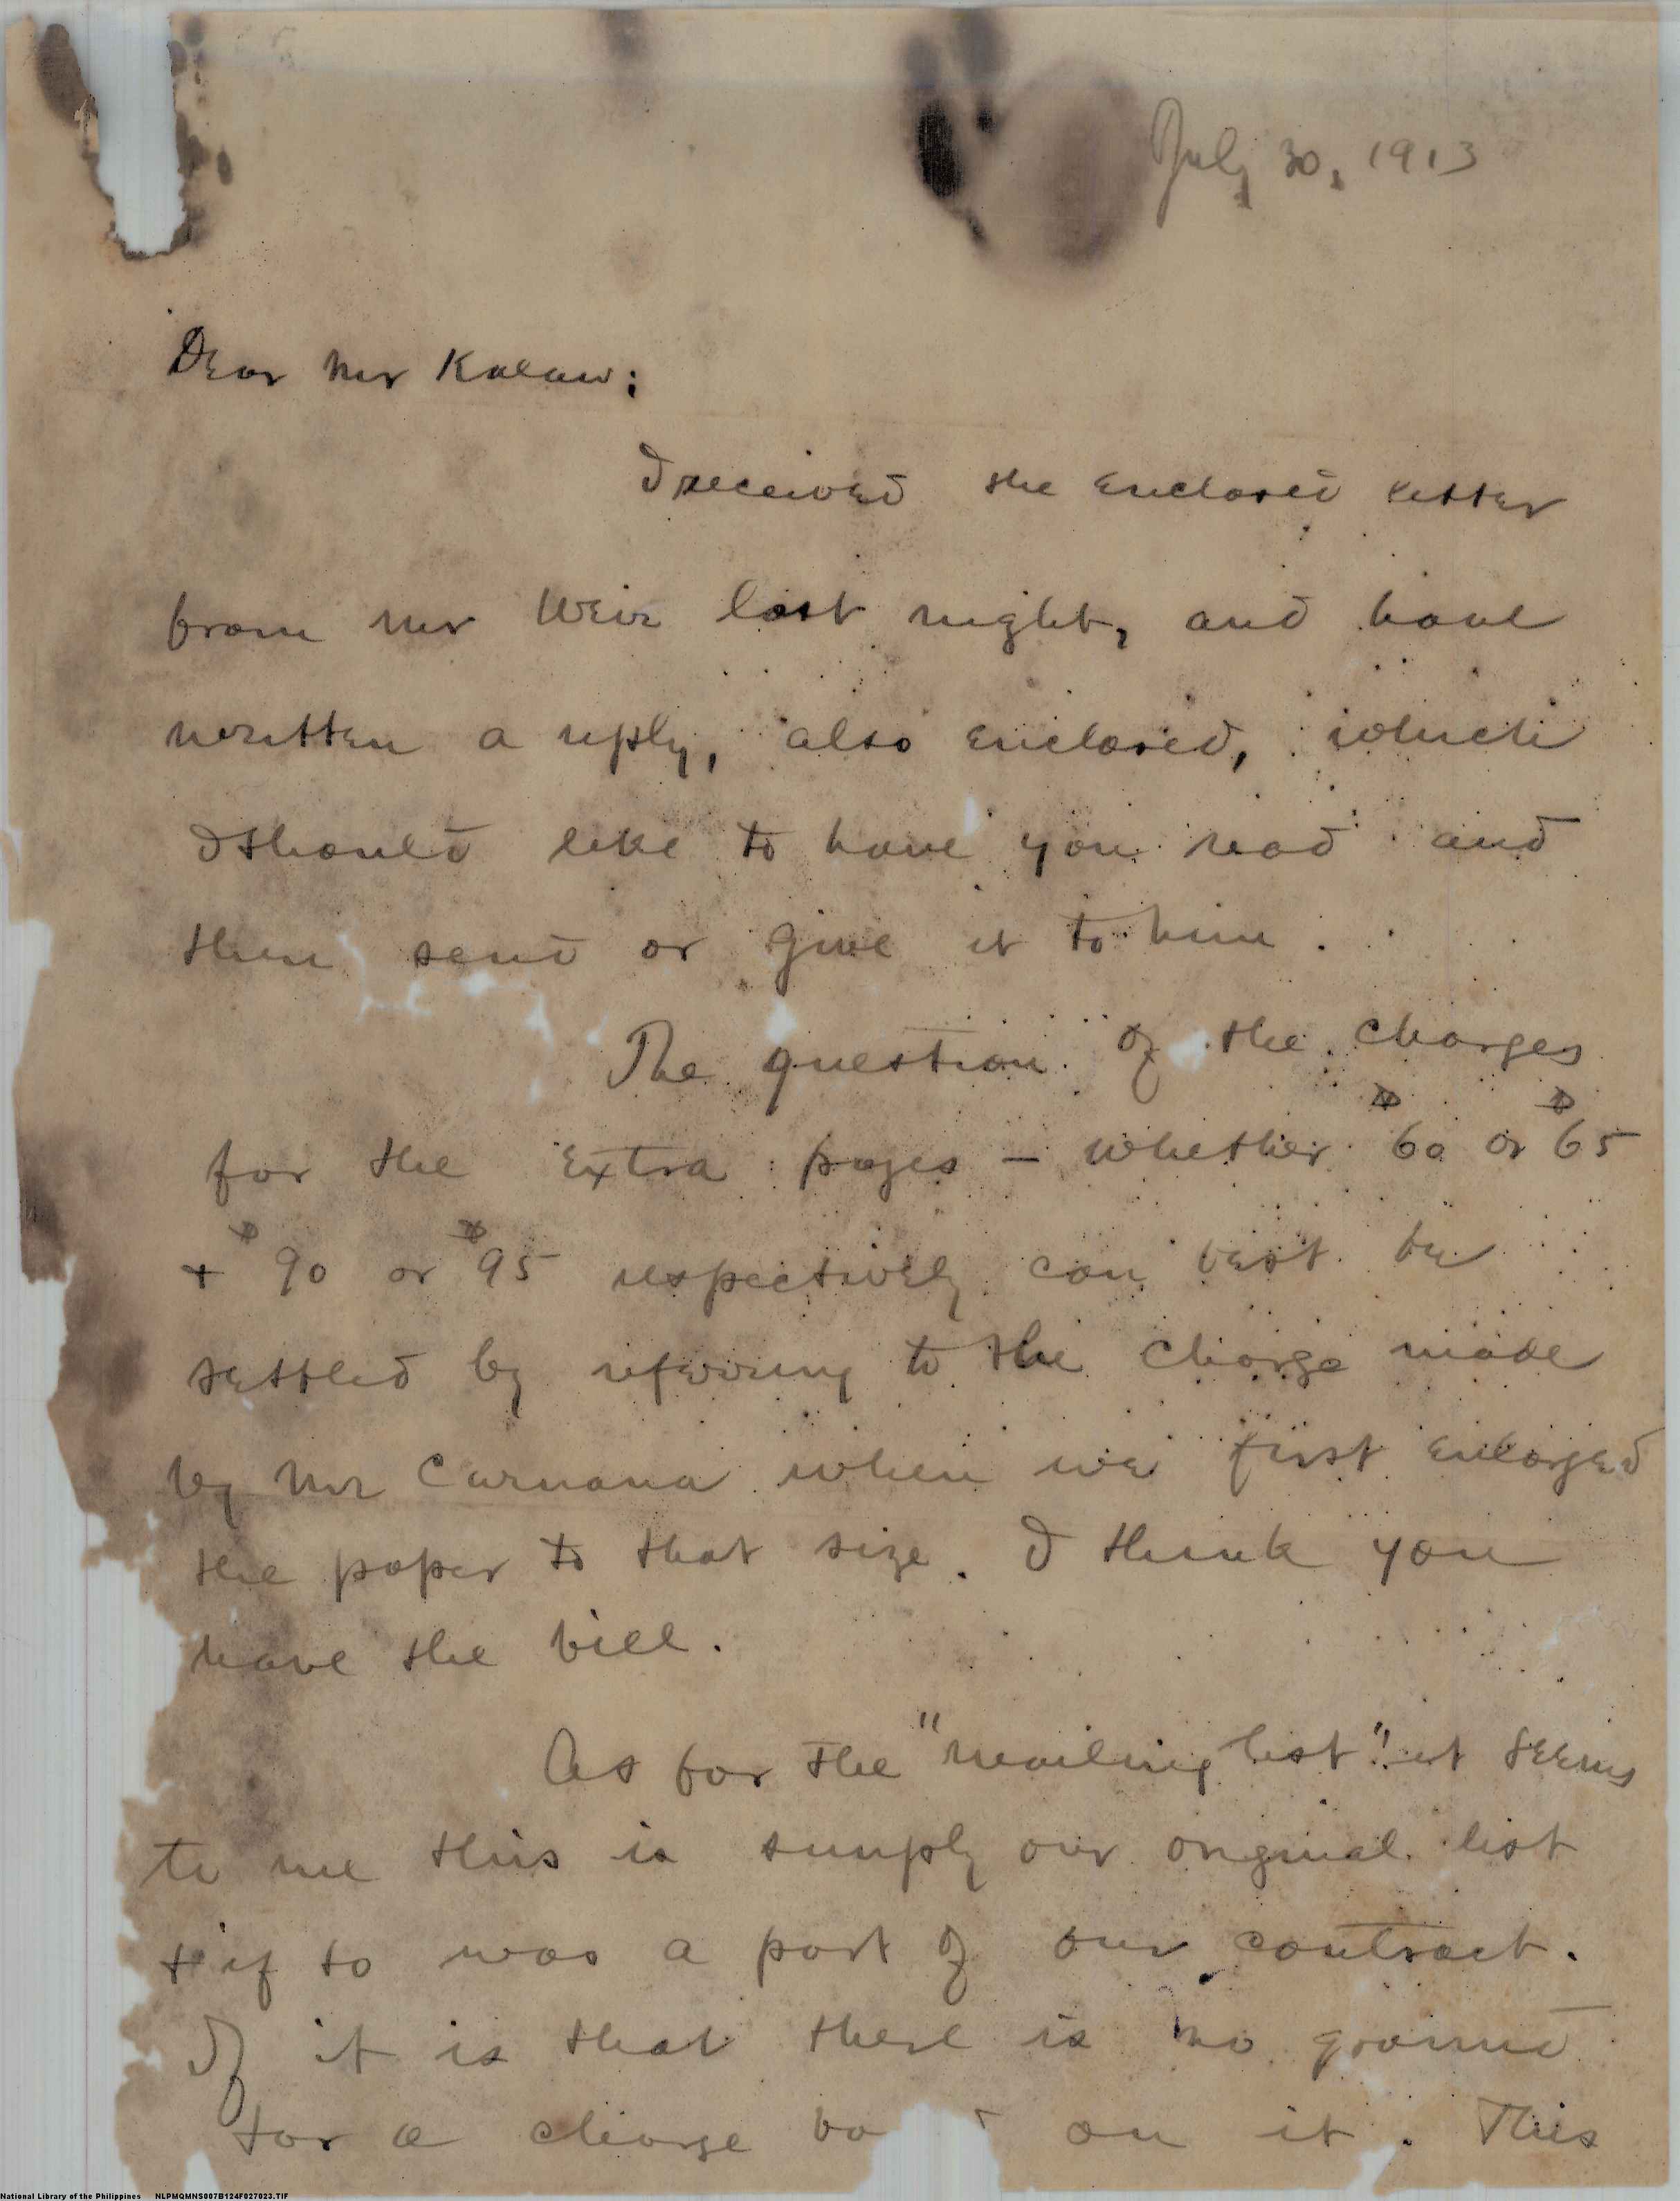 July 30, 1913
Dear Mr Kalaw:
I received the enclosed letter
from Mr Weir last night, and have
written a reply, also enclosed, which
I should like to have you read and
then send or give it to him.
The question of the charges
for the extra pages — whether ₱60 or ₱65
+ ₱90 or ₱95 respectively can best be
settled by referring to the charge made
by Mr Caruana when we first enlarged
the paper to that size. I think you
have the bill.
As for the "mailing list" it seems
to me this is simply our original list
+ if so was a part of our contract.
If it is that there is no ground
for a charge on it. This
National Library of the Philippines NLPMQMNS007B124F027023.TIF